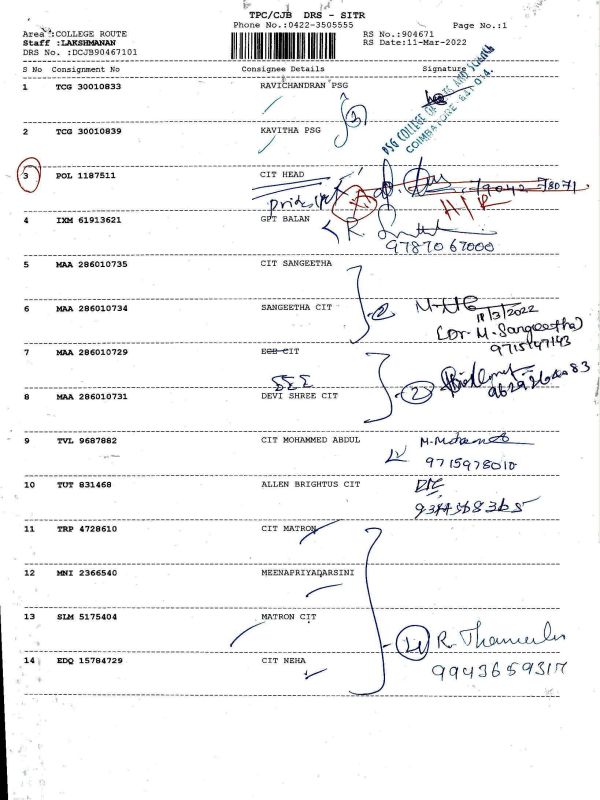 TPC/CJB DRS - SITR
Phone No.:0422-3505555 Page No.:1
Area :COLLEGE ROUTE RS No.:904671
Staff :LAKSHMANAN RS Date:11-Mar-2022
DRS No. :DCJB90467101
S No Consignment No Consignee Details Signature
1 TCG 30010833 RAVICHANDRAN PSG
PSG COLLEGE OF ARTS AND SCIENCE
COIMBATORE - 641 014.
3
2 TCG 30010839 KAVITHA PSG
3 POL 1187511 CIT HEAD
79042 78071
H/R
4 IXM 61913621 GPT BALAN
9787067000
5 MAA 286010735 CIT SANGEETHA
6 MAA 286010734 SANGEETHA CIT 2
18/3/2022
(Dr. M. Sangeetha)
9715147143
7 MAA 286010729 ECE CIT
2
8 MAA 286010731 DEVI SHREE CIT
9 TVL 9687882 CIT MOHAMMED ABDUL M. Mohamed
9715978010
10 TUT 831468 ALLEN BRIGHTUS CIT
9344568365
11 TRP 4728610 CIT MATRON
12 MNI 2366540 MEENAPRIYADARSINI
13 SLM 5175404 MATRON CIT
14 EDQ 15784729 CIT NEHA
9943659317